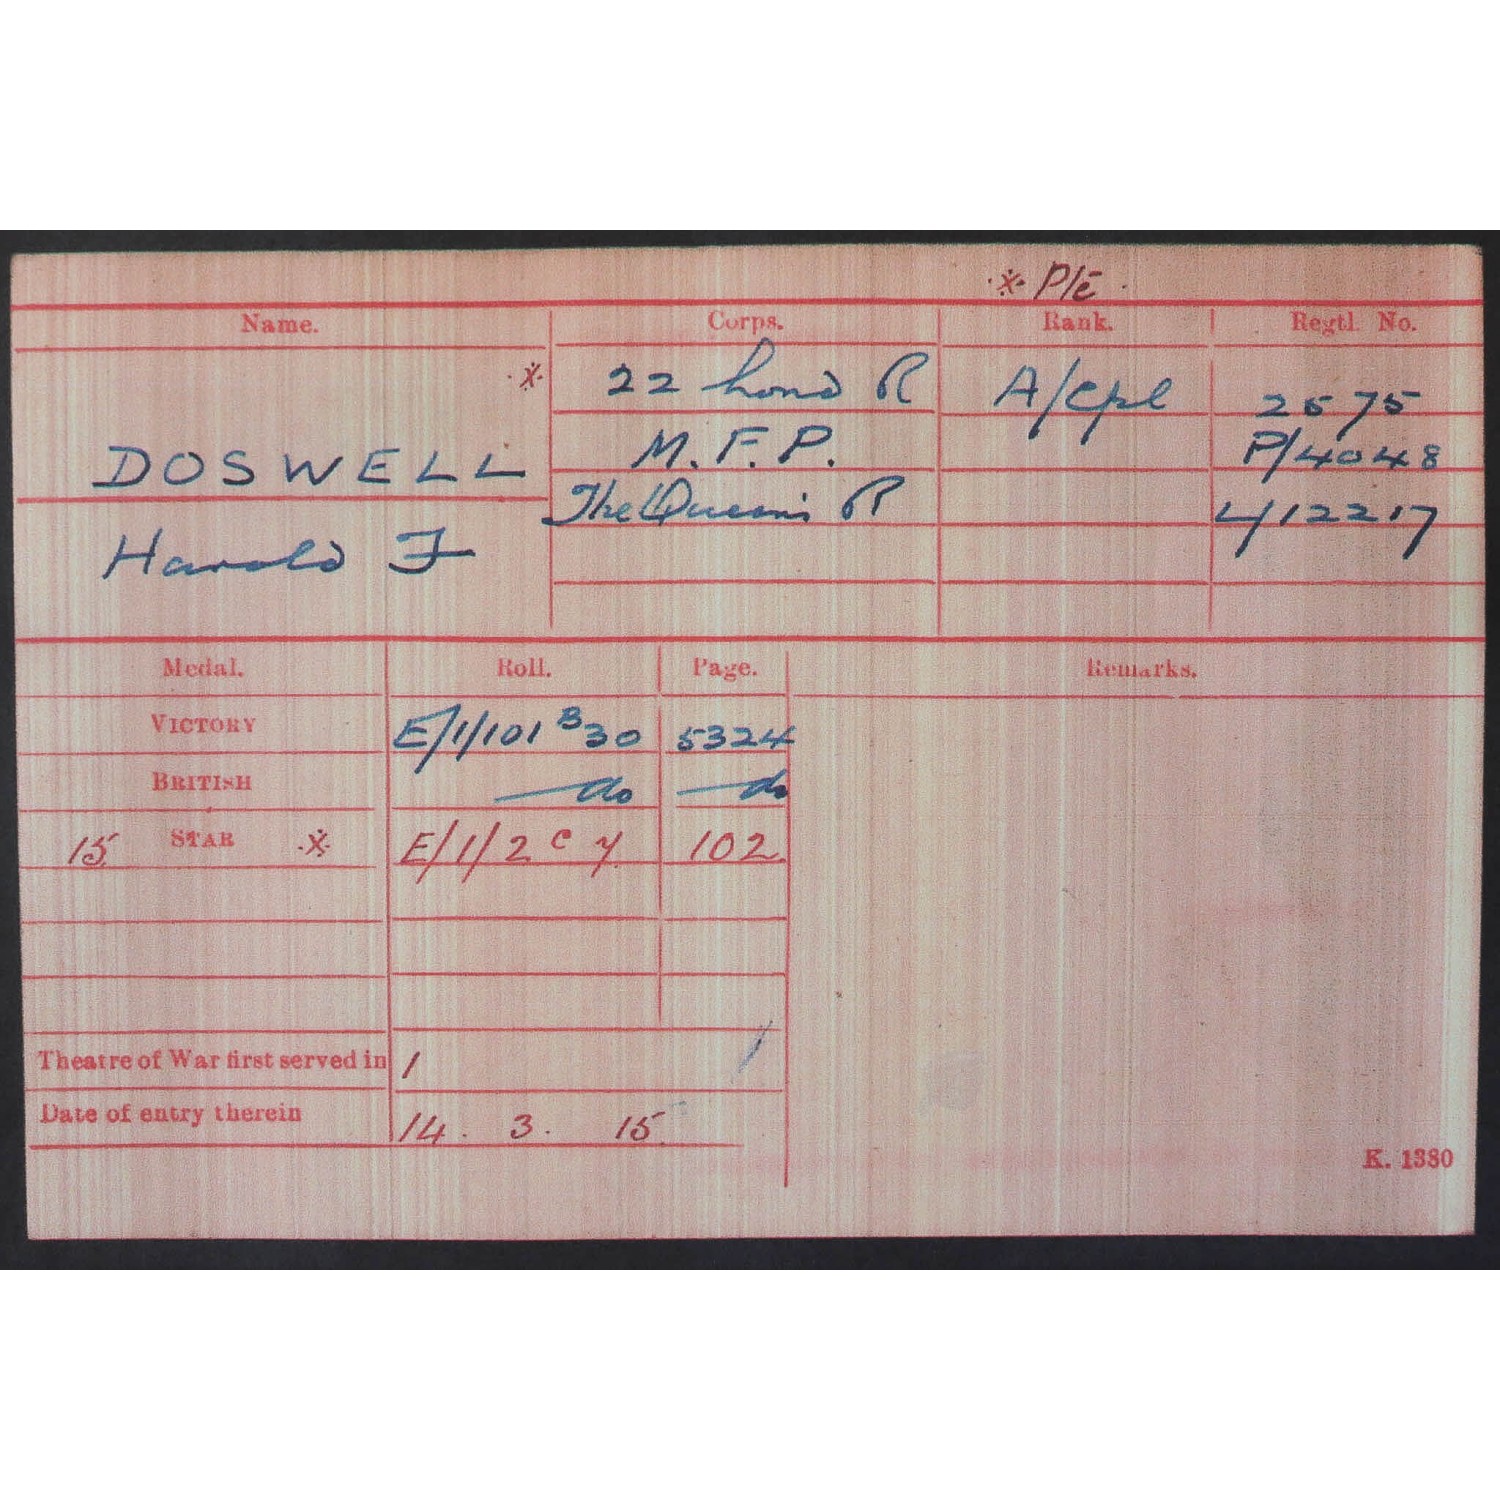 ※ Pte
Name. Corps. Rank. Regtl. No.
※ 22 Lond R A/Cpl 2575
DOSWELL M.F.P. P/4048
Harold F The Queen's R L/12217
Medal. Roll. Page. Remarks.
VICTORY E/1/101 B30 5324
BRITISH do do
15 STAR ※ E/1/2 C 7 102.
Theatre of War first served in 1
Date of entry therein 14. 3. 15
K. 1380